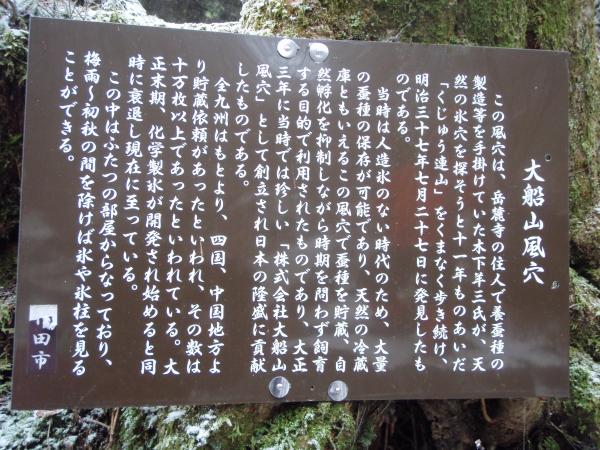 大船山風穴
この風穴は、岳麓寺の住人で養蚕種の
製造等を手掛けていた木下羊三氏が、天
然の氷穴を探そうと十一年ものあいだ
「くじゅう連山」をくまなく歩き続け、
明治三十七年七月二十七日に発見したも
のである。
当時は人造氷のない時代のため、大量
の蚕種の保存が可能であり、天然の冷蔵
庫ともいえるこの風穴で蚕種を貯蔵、自
然孵化を抑制しながら時期を問わず飼育
する目的で利用されたものであり、大正
三年に当時では珍しい「株式会社大船山
風穴」として創立され日本の隆盛に貢献
したものである。
全九州はもとより、四国、中国地方よ
り貯蔵依頼があったといわれ、その数は
十万枚以上であったといわれている。大
正末期、化学製氷が開発され始めると同
時に衰退し現在に至っている。
この中はふたつの部屋からなっており、
梅雨~初秋の間を除けば氷や氷柱を見る
ことができる。
田市